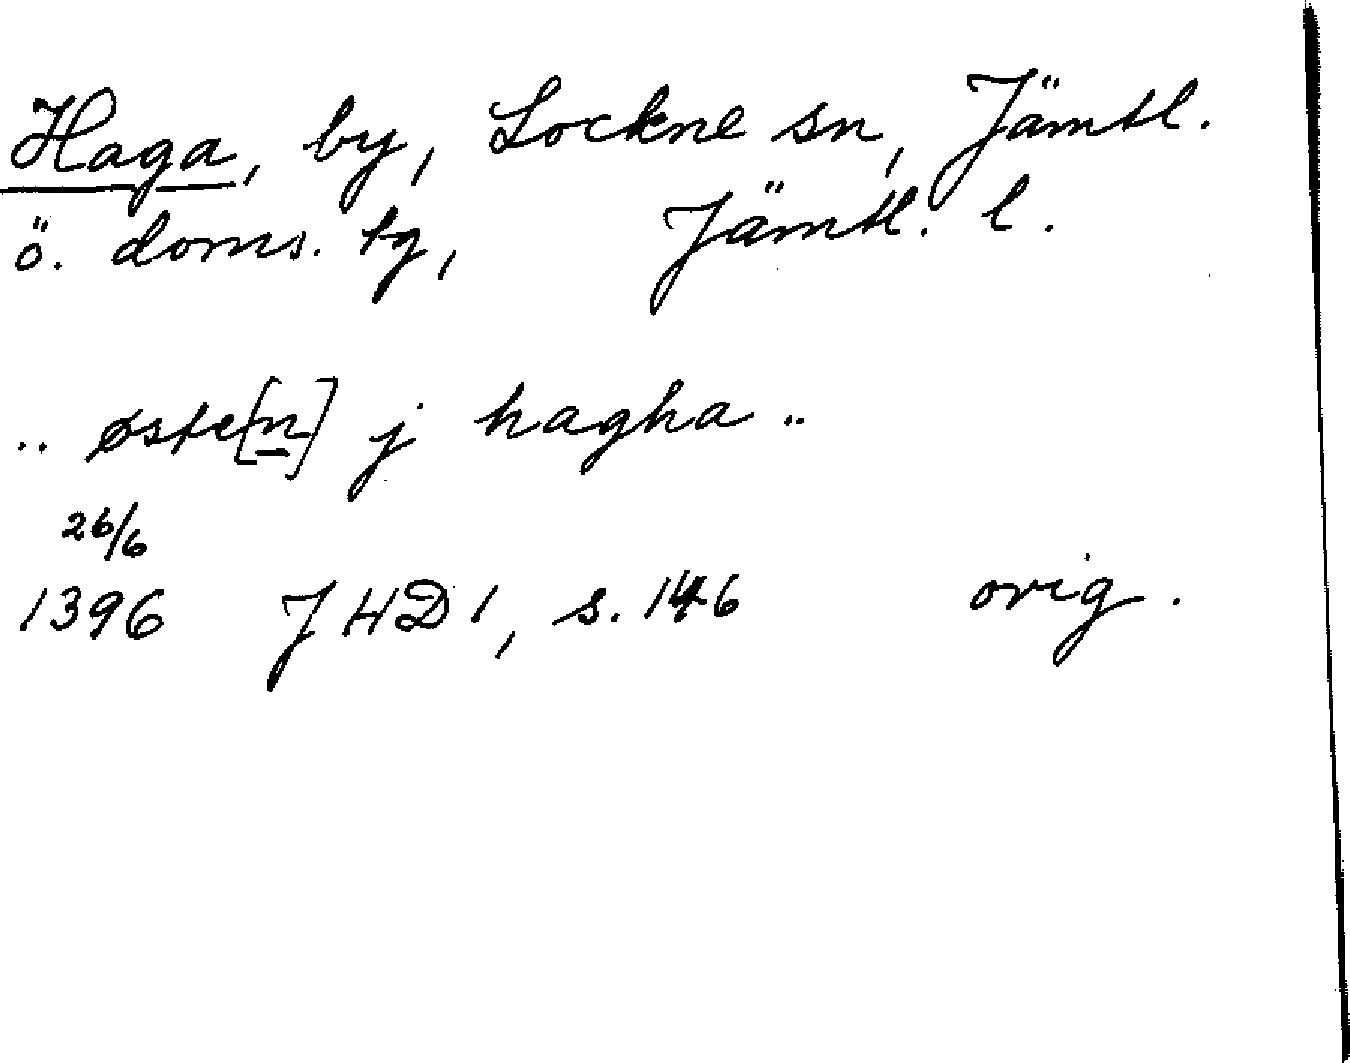 Haga, by, Lockne sn, Jämtl.
ö. doms. tg, Jämtl. l.
.. øste[n] j hagha ..
26/6
1396 JHD 1, s. 146 orig.